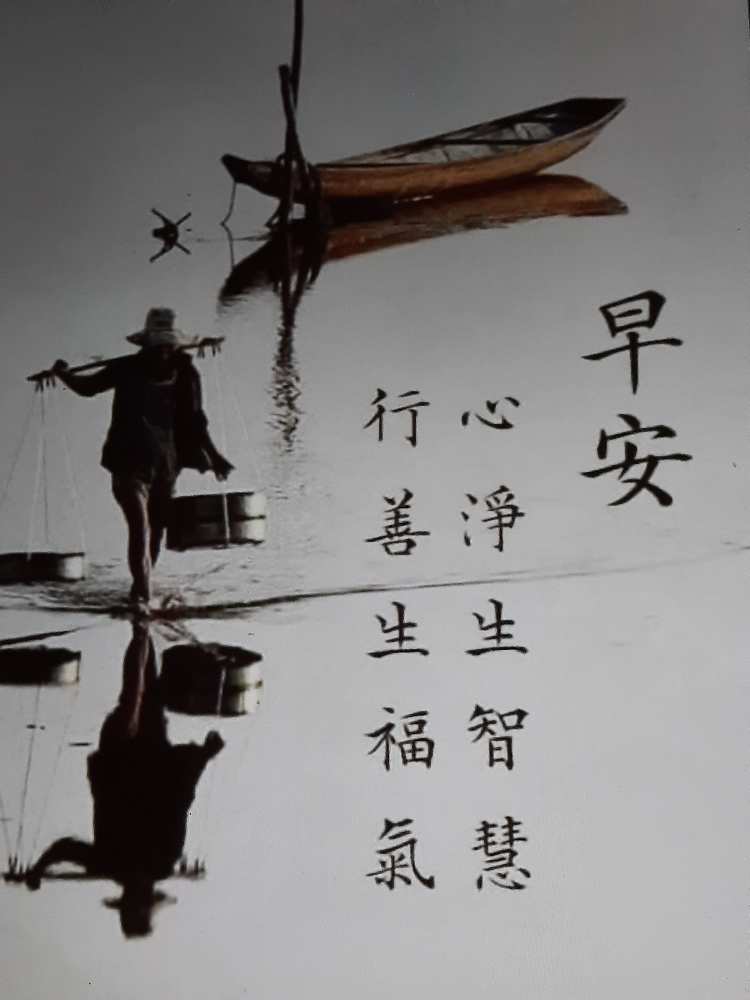 早安
心淨生智慧
行善生福氣